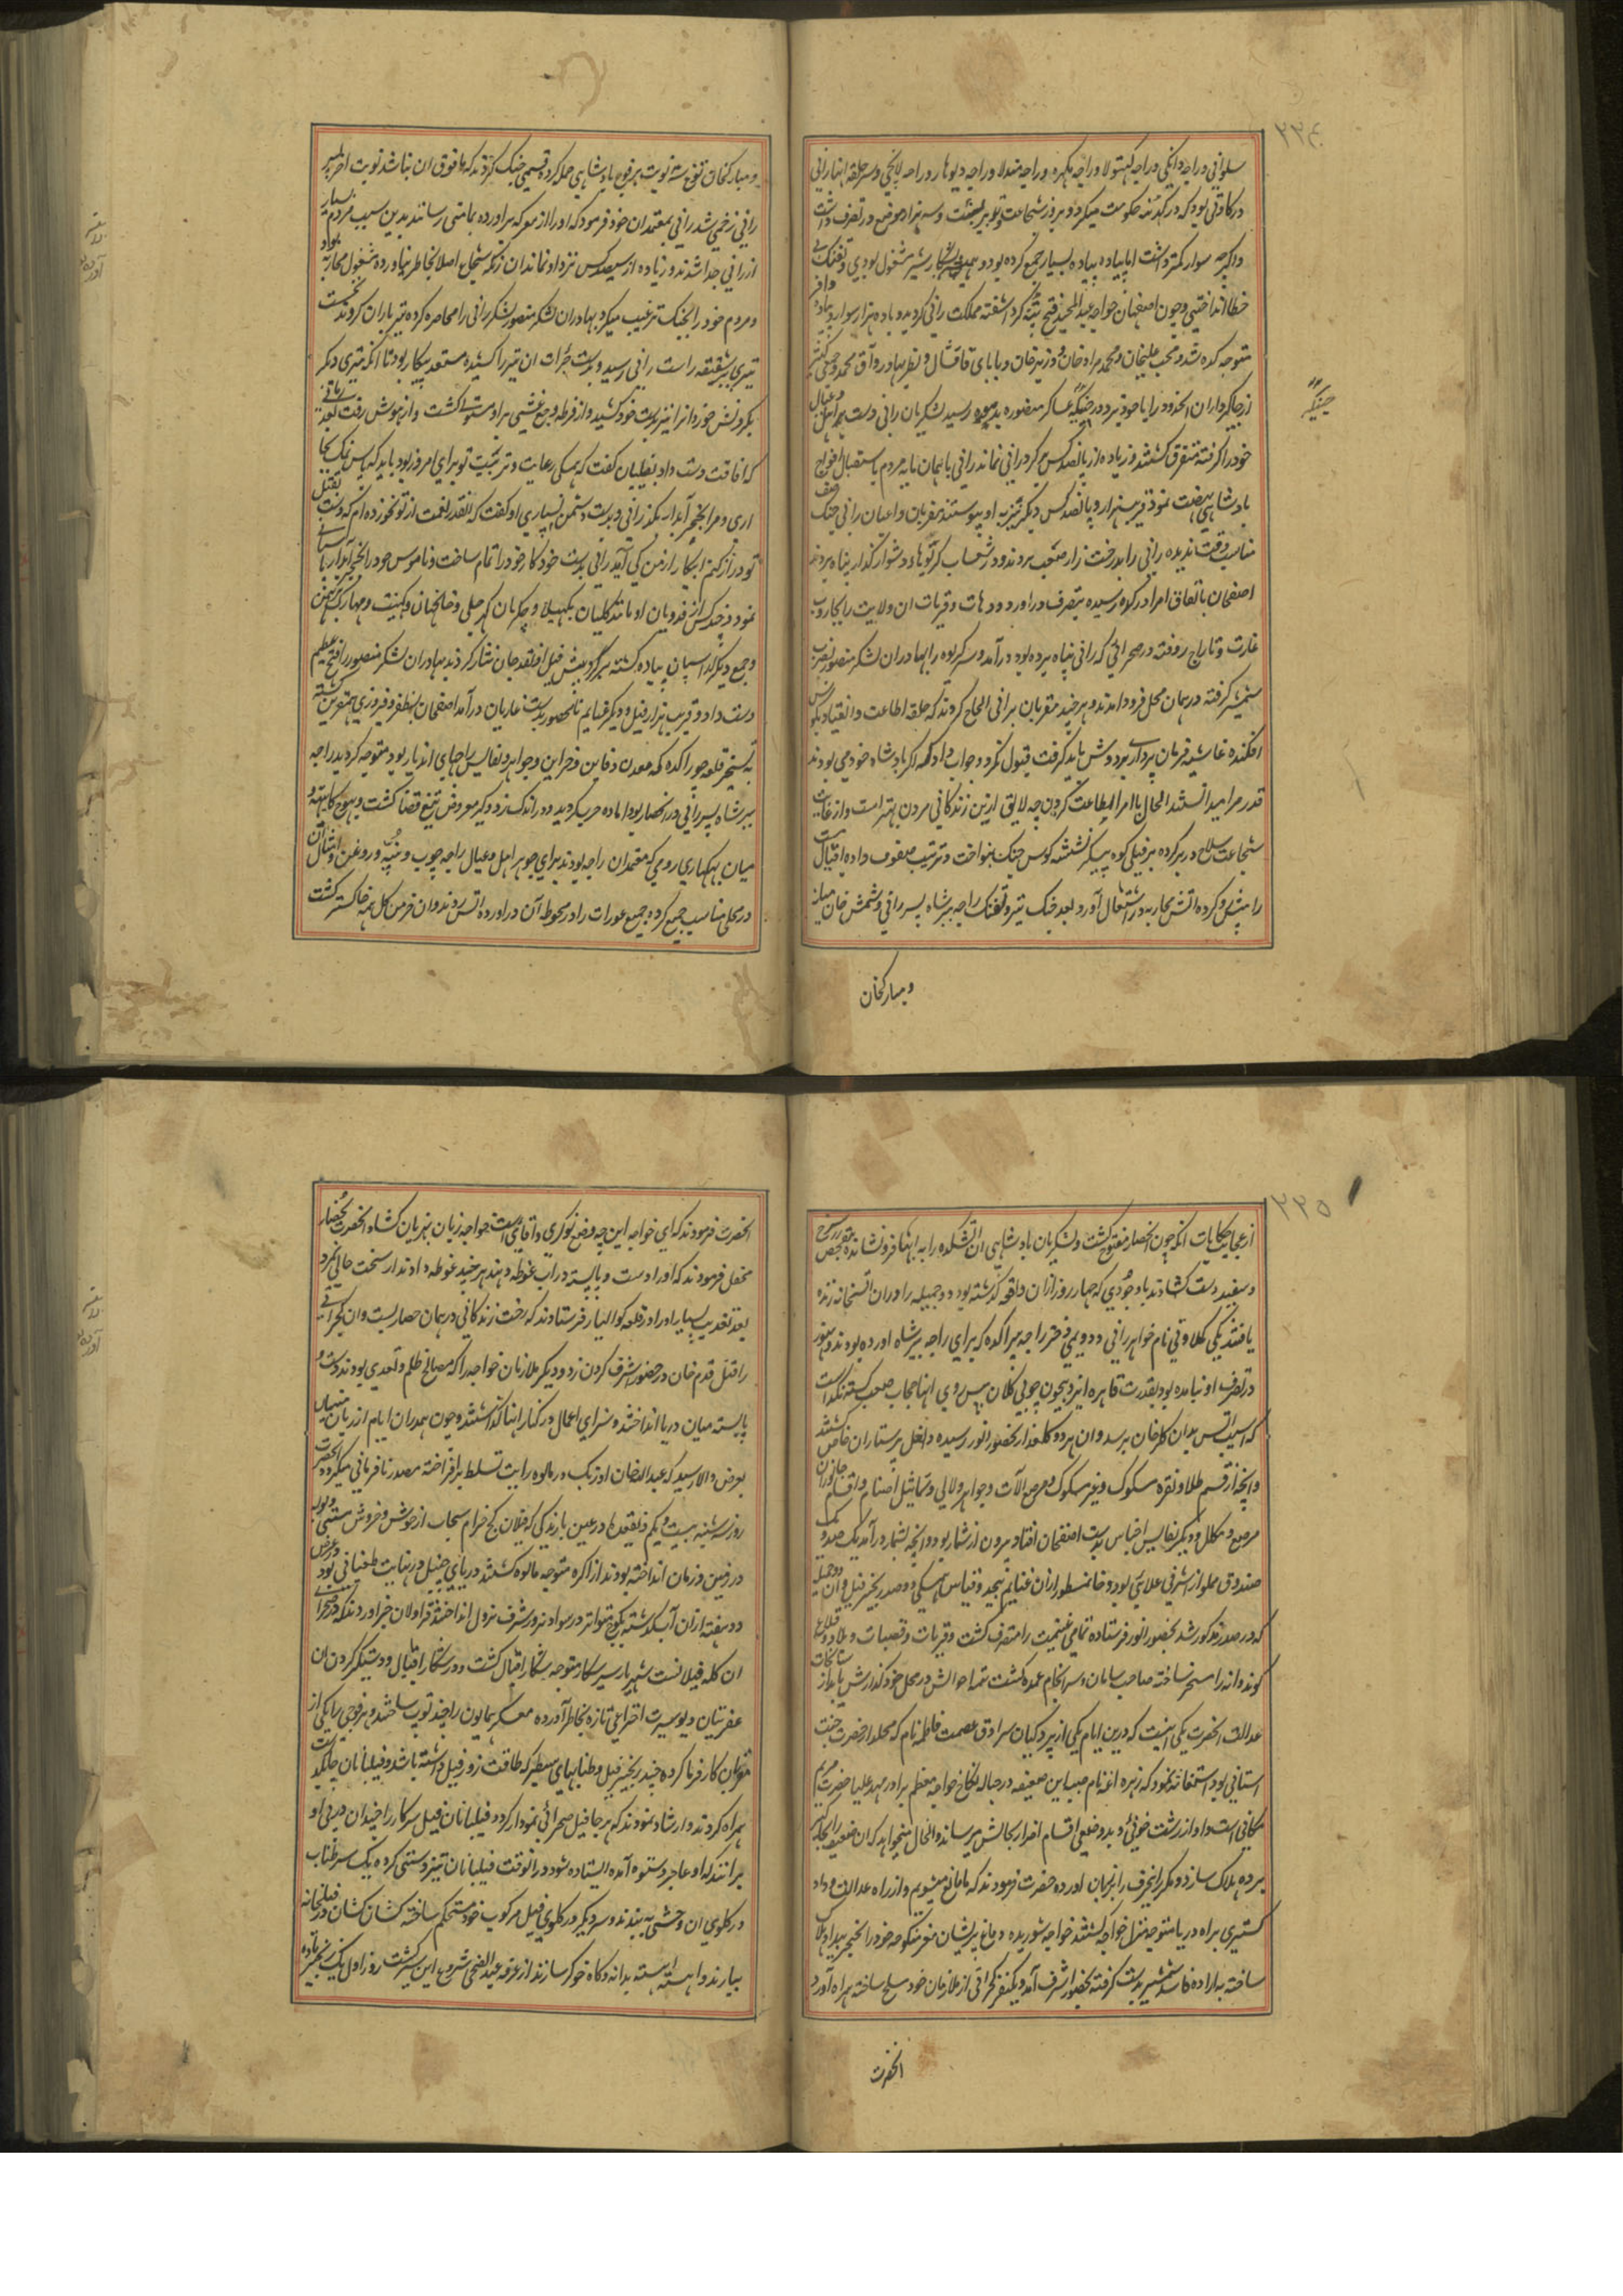 ۲۲۴
سلوانی و راجه دانکی و راجه کهتولا و راجه مکهره و راجه مندلا و راجه دیوهار و راجه لانجی و سر حلقه اینها رانی
درکاوتی بود که در کدهه کتنکه حکومت میکرد و بر زر شجاعت و تهور می نشست و سه هزار موضع در تصرف داشت
و اگرچه سوار کمتر داشت اما پیاده بسیار جمع کرده بود و همیشه بشکار شیر مشغول بودی و تفنک بی
خطا انداختی و چون اصفخان خواجه عبدالمجید فتح پتنه کرد آشفته مملکت رانی کردید و با ده هزار سوار و پیاده وافر
متوجه کده شد و محب علیخان و محمد مراد خان و وزیر خان و بابای قاقشال و نظر بهادر و آق محمد و جمعی کثیر
از جاکیرداران انحدود را با خود برد و در جنیکه عساکر منصوره بدموه رسید لشکریان رانی دست اهل و عیال
خود را کرفته متفرق کشتند و زیاده از پانصد کس همراه رانی نماند رانی با همان مایه مردم باستقبال افواج
بادشاهی نهضت نمود و قریب دو هزار و پانصد کس دیکر نیز به او پیوستند مقربان و اعیان رانی جنک صف
مناسب وقت ندیده رانی را بدرخت زار صعب بردند و در شعاب کریوهاء دشوار کذار پناه بردند
اصفخان باتفاق امرا درکوه رسیده بتصرف دراورد و دهات و قریات ان ولایت را بجاروب
غارت و تاراج روفته در صحرائی که رانی پناه برده بود درآمد و سر کریوه را بهادران لشکر منصور بضرب
شمشیر کرفته در همان محل فرود امدند و هر چند مقربان برانی الحاح کردند که حلقه اطاعت و انقیاد بکوش
افکنده غاشیه فرمان برداری بر دوش باید کرفت قبول نکرد و جواب داد که اکر بادشاه خود می بودند
قدر مرا میدانستند الحال با امرا اطاعت کردن چه لایق ازین زندکانی مردن بهتر است و از غایت
شجاعت سلاح در بر کرده بر فیلی کوه پیکر نشسته کوس جنک بنواخت و ترتیب صفوف داده اقبال
را پیش رو کرده اتش محاربه در اشتعال آورد بعد جنک تیر و تفنک راجه بیر شاه پسر رانی و شمس خان میانه
و مبارکخان
جنیکه
و مبارکخان بلوچ سه نوبت بر فوج بادشاهی حمله کرده قسمی جنک کردند که مافوق ان نباشد نوبت اخر پسر
رانی زخمی شد رانی بمعتمدان خود فرمود که او را از معرکه براورده بمامنی رسانند بدین سبب مردم بسیار
از رانی جدا شدند و زیاده از سیصد کس نزد او نماندان زن شجاع اصلا بخاطر نیاورده مشغول محاربه بود
و مردم خود را بجنک ترغیب میکرد بهادران لشکر منصور لشکر رانی را محاصره کرده تیرباران کردند نخست
تیری بر شقیقه راست رانی رسید و بدست جرأت ان تیر را کشیده مستعد پیکار بود تا انکه تیری دیکر
بکردنش خورد انرا نیز بدست خود کشید و از فرط وجع غشی بر او مستولی کشت و از هوش رفت بعد زمانی
که افاقت دست داد بفیلبان کفت که همکی رعایت و تربیت تو برای امروز بود باید که پاس نمک بجا
اری و مرا بخنجر آبدار بکذرانی و بدست دشمن نسپاری او کفت که انقدر نعمت از تو نخورده ام که دست بقتل
تو دراز کنم اینکار از من کی آید رانی بدست خود کار خود را تمام ساخت و ناموس خود را بخنجر آبدار پاسبانی
نمود و چند کس از فدویان او مانند کلیان بکهیلا و چکرمان کهرچلی و خانجهان دکهیت و مهارک برهمن
و جمع دیکر از اسپان پیاده کشته بر کرد پیش فیل او نقد جان نثار کردند بهادران لشکر منصور را فتح عظیم
دست داد و قریب هزار فیل و دیکر غنایم نامحصور بدست غازیان درآمد اصفخان بظفر و فیروزی مقرین کشته
به تسخیر قلعه چوراکده که معدن دفاین و خزاین و جواهر و نفایس راجهای اندیار بود متوجه کردید راجه
بیر شاه پسر رانی در انحصار بود اماده حرب کردید و در اندک زد و کیر معروض تیغ قضا کشت و بهوج کایته و
میان بهکاری رومی که معتمدان راجه بودند برای جوهر اهل و عیال راجه چوب و پنبه و روغن و امثال آن
در محلی مناسب جمع کرده جمیع عورات را در محوطه آن دراورده اتش زدند و ان خرمن کل همه خاکستر کشت
۲۲۵
از عجایب حکایات انکه چون انحصار مفتوح کشت و لشکریان بادشاهی ان اتشکده را به ابها فرو نشانده بتفحص زر سرخ
و سفید دست کشادند باوجودی که چهار روز ازان واقعه کذشته بود دو جمیله را دران اتشخانه زنده
یافتند یکی کملاوتی نام خواهر رانی و دویمی دختر راجه پوراکده که برای راجه بیر شاه اورده بودند و هنوز
در تصرف او نیامده بود بقدرت قاهره ایزد بیچون چوبی کلان پیش روی اینها حجاب صعب کشته نکذاشت
که آسیب اتس بدان کلرخان برسد و ان هر دو کلعذار بحضور انور رسیده داخل پرستاران خاص کشتند
و انچه از قسم طلا و نقره مسکوک و غیر مسکوک و مرصع الات و جواهر و لالی و تماثیل اصنام و اقسام جانوران
مرصع و مکلل و دیکر نفایس اجناس بدست اصفخان افتاد بیرون از شمار بود و انچه بشمار درآمد یک صد و یک
صندوق مملو از اشرفی علائی بود و خان مسطور ازان غنایم بیحد و قیاس همکی دو صد زنجیر فیل و ان دو جمیله
که در صدر مذکور شد بحضور انور فرستاده تمامی غنیمت را متصرف کشت و قریات و قصبات و بلاد و قلاع
کوندوانه را مسخر ساخته صاحب سامان و سرانجام عمده کشت تتمه احوالش در محل خود کذارش یابد از سانحات
عدالت انحضرت یکی اینست که درین ایام یکی از پردکیان سرادق عصمت فاطمه نام که محلدار حضرت جنت
استانی بود استغاثه نمود که زهره اغه نام صبیه این ضعیفه در حباله نکاح خواجه معظم برادر مهد علیا حضرت مریم
مکانی است و او از زشت خوئی و بدوضعی اقسام اضرار بحالش میرساند و الحال میخواهد که ان ضعیفه را بجاکیر
برده هلاک سازد و مکرر اینحرف را بزبان اورده حضرت فرمودند که ما مانع میشویم و از راه عدالت و داد
کستری براه دریا متوجه منزل خواجه کشتند خواجه شوریده دماغ پریشان مغز منکوحه خود را بخنجر بیداد هلاک
ساخته به اراده فاسد شمشیر بدست کرفته بحضور اشرف آمد و یکنفر کجراتی از ملازمان خود مسلح ساخته همراه آورد
انحضرت
انحضرت فرمودند که ای خواجه این چه وضع نوکری و اقائی است خواجه زبان بهزیان کشاد انحضرت بحضار
محفل فرمودند که او را دست و پا بسته در آب غوطه دهند هر چند غوطه دادند ان سخت جانی نمرد
بعد تعذیب بسیار او را در قلعه کوالیار فرستادند که رخت زندکانی در همان حصار بست و ان کجراتی
را قتل قدم خان در حضور اشرف کردن زد و دیکر ملازمان خواجه را که مصالح ظلم و تعدی بودند دست و
پا بسته میان دریا انداختند و سزای اعمال در کنار اینها کذاشتند و چون همدران ایام از زبان منهیان
بعرض والا رسید که عبدالله خان اوزبک در مالوه رایت تسلط برافراخته مصدر نافرمانی میکردد انحضرت
روز سه شنبه بیست و یکم ذیقعده در عین بارندکی که فیلان کج خرام سحاب از جوش و خروش مستی ولوله
در زمین و زمان انداخته بودند از اکره متوجه مالوه کشتند دریای چنبل در نهایت طغیانی بود در عرض
دو هفته ازان آب کذشته بکوچ متواتر در سواد نرور شرف نزول انداختند قراولان خبر اوردند که در صحرای
ان کله فیلانست شهریار شیر شکار متوجه شکار اقبال کشت و در شکار اقبال و دستکیر کردن ان
عفریتان دیو سیرت اختراعی تازه بخاطر آورده معسکر همایون را چند توپ ساختند و هر فوجی را یکی از
مقربان کارفرما کرده چند زنجیر فیل و طنابهای سطبر که طاقت زور فیل داشته باشد و فیلبانان چابکدست
همراه کردند و ارشاد نمودند که هر جا فیل صحرائی نمودار کردد فیلبانان فیل سرکار را چندان در پی او
برانند که او عاجز و ستوه آمده ایستاده شود در انوقت فیلبانان تیز دستی کرده یک سر طناب
در کلوی ان وحشی به بندند و سر دیکر در کلوی فیل مرکوب خود مستحکم ساخته کشان کشان در فیلخانه
بیارند و اهسته اهسته بدانه و کاه خوکر سازند از عرفه عید الضحی شروع این کشت روز اول یک زنجیر ماده